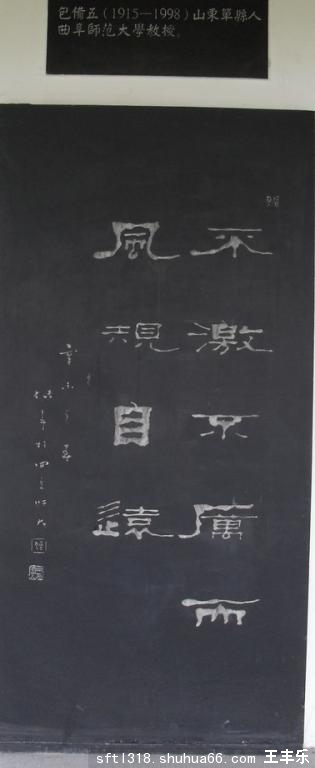 包備五(1915—1998)山東單縣人
曲阜師范大學教授。
不激不厲而
風規自遠
辛未之春
sftl318.shuhua66.com 王丰乐